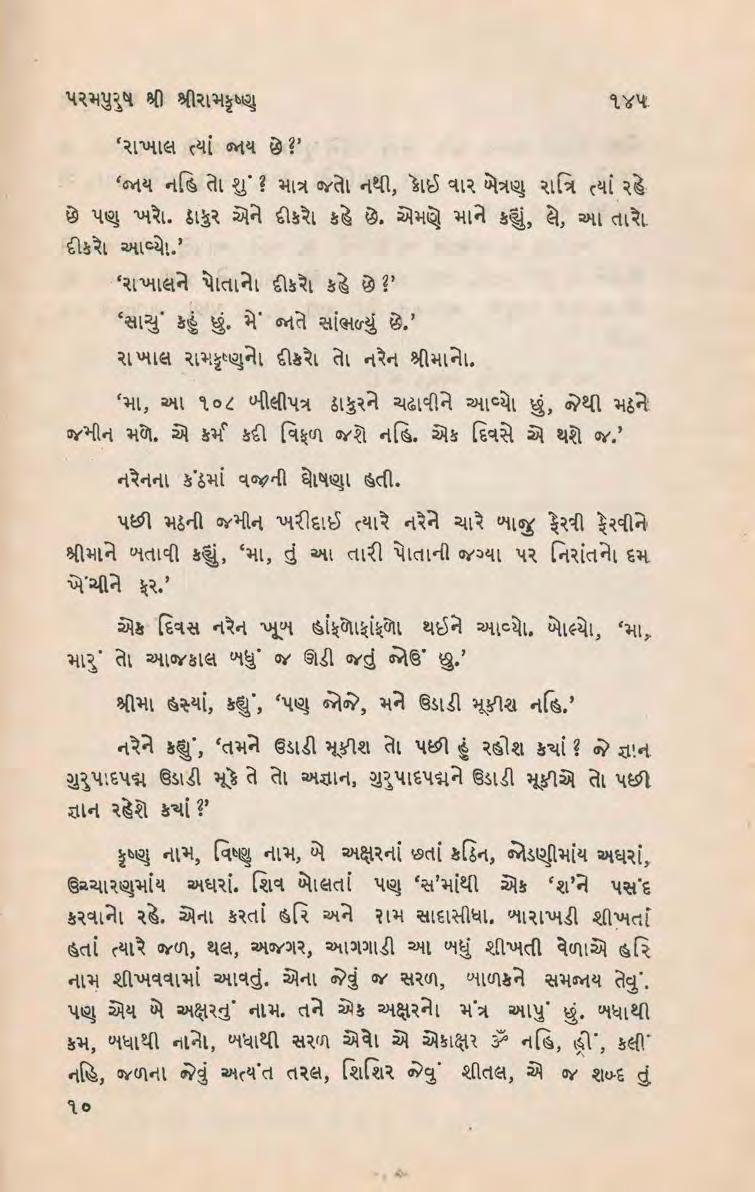 પરમપુરુષ શ્રી શ્રીરામકૃષ્ણ ૧૪૫
‘રાખાલ ત્યાં જાય છે?’
‘જાય નહિ તો શું? માત્ર જતો નથી, કોઈ વાર બેત્રણ રાત્રિ ત્યાં રહે
છે પણ ખરો. ઠાકુર એને દીકરો કહે છે. એમણે માને કહ્યું, લે, આ તારો
દીકરો આવ્યો.’
‘રાખાલને પોતાનો દીકરો કહે છે?’
‘સાચું કહું છું. મેં જાતે સાંભળ્યું છે.’
રાખાલ રામકૃષ્ણનો દીકરો તો નરેન શ્રીમાનો.
‘મા, આ ૧૦૮ બીલીપત્ર ઠાકુરને ચઢાવીને આવ્યો છું, જેથી મઠને
જમીન મળે. એ કર્મ કદી વિફળ જશે નહિ. એક દિવસે એ થશે જ.’
નરેનના કંઠમાં વજ્રની ઘોષણા હતી.
પછી મઠની જમીન ખરીદાઈ ત્યારે નરેને ચારે બાજુ ફેરવી ફેરવીને
શ્રીમાને બતાવી કહ્યું, ‘મા, તું આ તારી પોતાની જગ્યા પર નિરાંતનો દમ
ખેંચીને ફર.’
એક દિવસ નરેન ખૂબ હાંફળોફાંફળો થઈને આવ્યો. બોલ્યો, ‘મા,
મારું તો આજકાલ બધું જ ઊડી જતું જોઉં છું.’
શ્રીમા હસ્યાં, કહ્યું, ‘પણ જોજે, મને ઉડાડી મૂકીશ નહિ.’
નરેને કહ્યું, ‘તમને ઉડાડી મૂકીશ તો પછી હું રહીશ કયાં? જે જ્ઞાન
ગુરુપાદપદ્મ ઉડાડી મૂકે તે તો અજ્ઞાન, ગુરુપાદપદ્મને ઉડાડી મૂકીએ તો પછી
જ્ઞાન રહેશે કયાં?’
કૃષ્ણ નામ, વિષ્ણુ નામ, બે અક્ષરનાં છતાં કઠિન, જોડણીમાંય અઘરાં,
ઉચ્ચારણમાંય અઘરાં. શિવ બોલતાં પણ ‘સ’માંથી એક ‘શ’ને પસંદ
કરવાનો રહે. એના કરતાં હરિ અને રામ સાદાસીધા. બારાખડી શીખતાં
હતાં ત્યારે જળ, થલ, અજગર, આગગાડી આ બધું શીખતી વેળાએ હરિ
નામ શીખવવામાં આવતું. એના જેવું જ સરળ, બાળકને સમજાય તેવું.
પણ એય બે અક્ષરનું નામ. તને એક અક્ષરનો મંત્ર આપું છું. બધાથી
કમ, બધાથી નાનો, બધાથી સરળ એવો એ એકાક્ષર ૐ નહિ, હ્રીં, કલીં
નહિ, જળના જેવું અત્યંત તરલ, શિશિર જેવું શીતલ, એ જ શબ્દ તું
૧૦